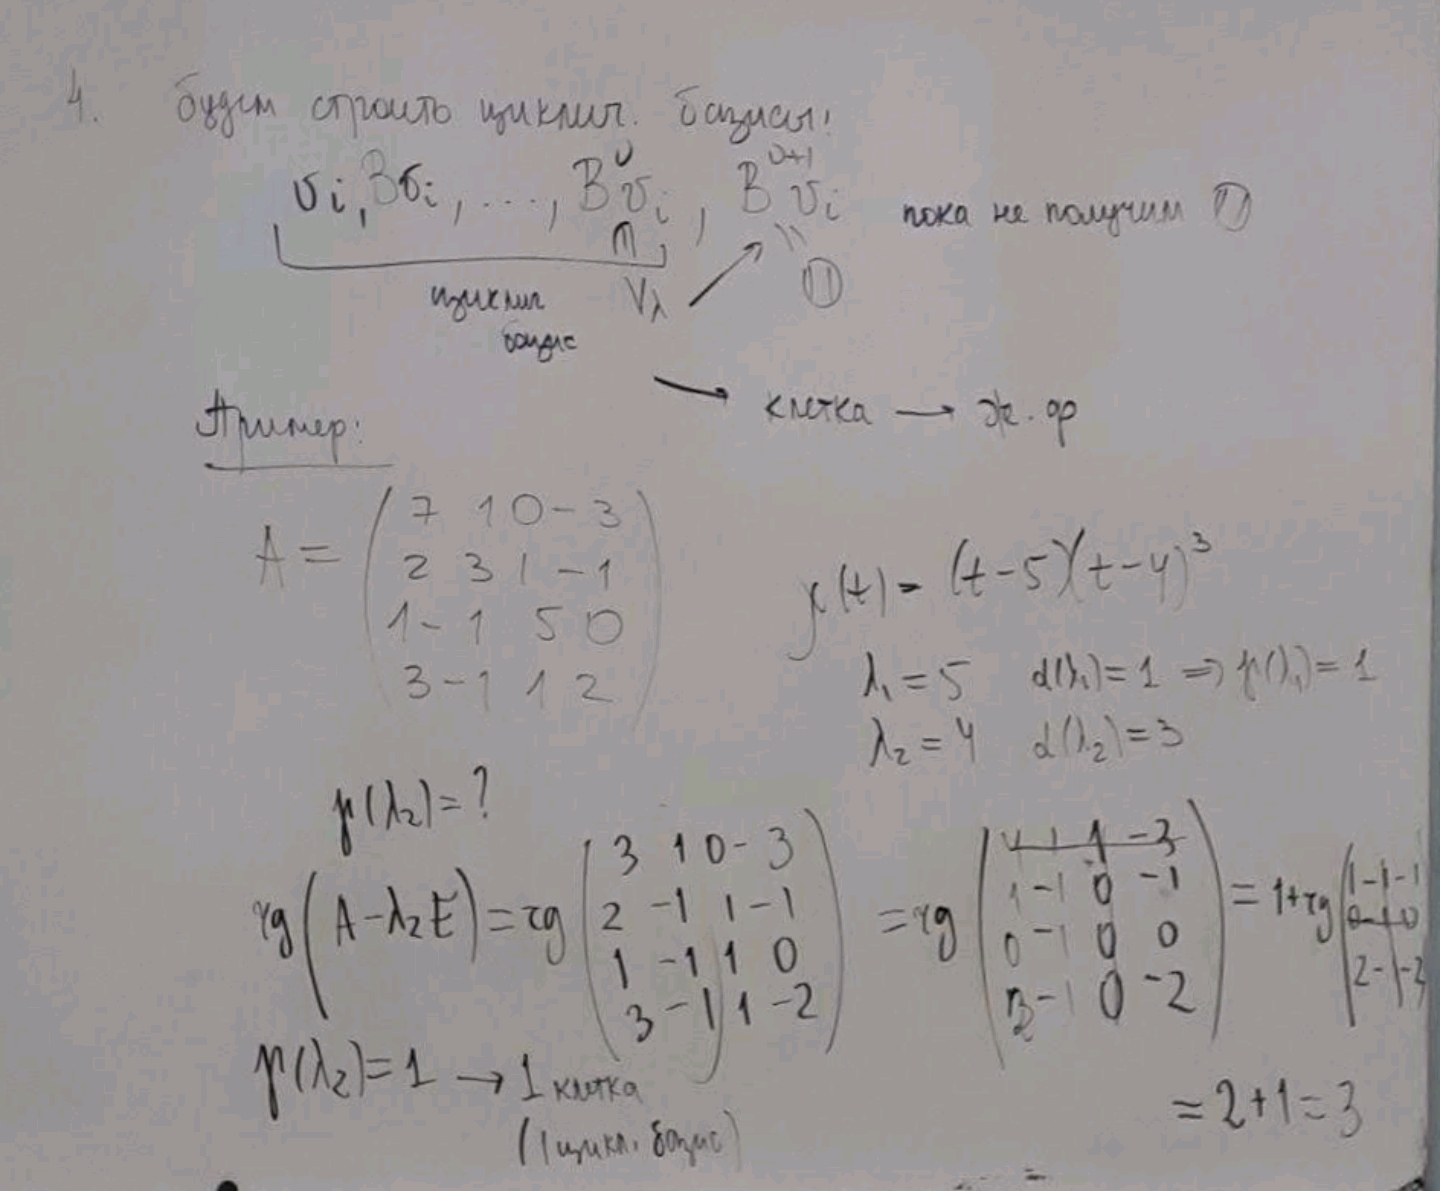 4. будем строить циклич. базисы:
vᵢ, Bvᵢ, ..., B^ν vᵢ, B^(ν+1) vᵢ пока не получим 0
∩ V_λ
= 0
циклич
базис
→ клетка → ж. ф
Пример:
A = ( 7 1 0 -3
2 3 1 -1
1 -1 5 0
3 -1 1 2 )
χ(t) = (t-5)(t-4)³
λ₁ = 5 d(λ₁) = 1 ⇒ γ(λ₁) = 1
λ₂ = 4 d(λ₂) = 3
γ(λ₂) = ?
rg(A - λ₂E) = rg ( 3 1 0 -3
2 -1 1 -1
1 -1 1 0
3 -1 1 -2 )
= rg ( 1 -3
1 -1 0 -1
0 -1 0 0
2 -1 0 -2 )
= 1 + rg ( 1 -1 -1
0 -1 0
2 -1 -2 )
= 2 + 1 = 3
γ(λ₂) = 1 → 1 клетка
(1 цикл. базис)